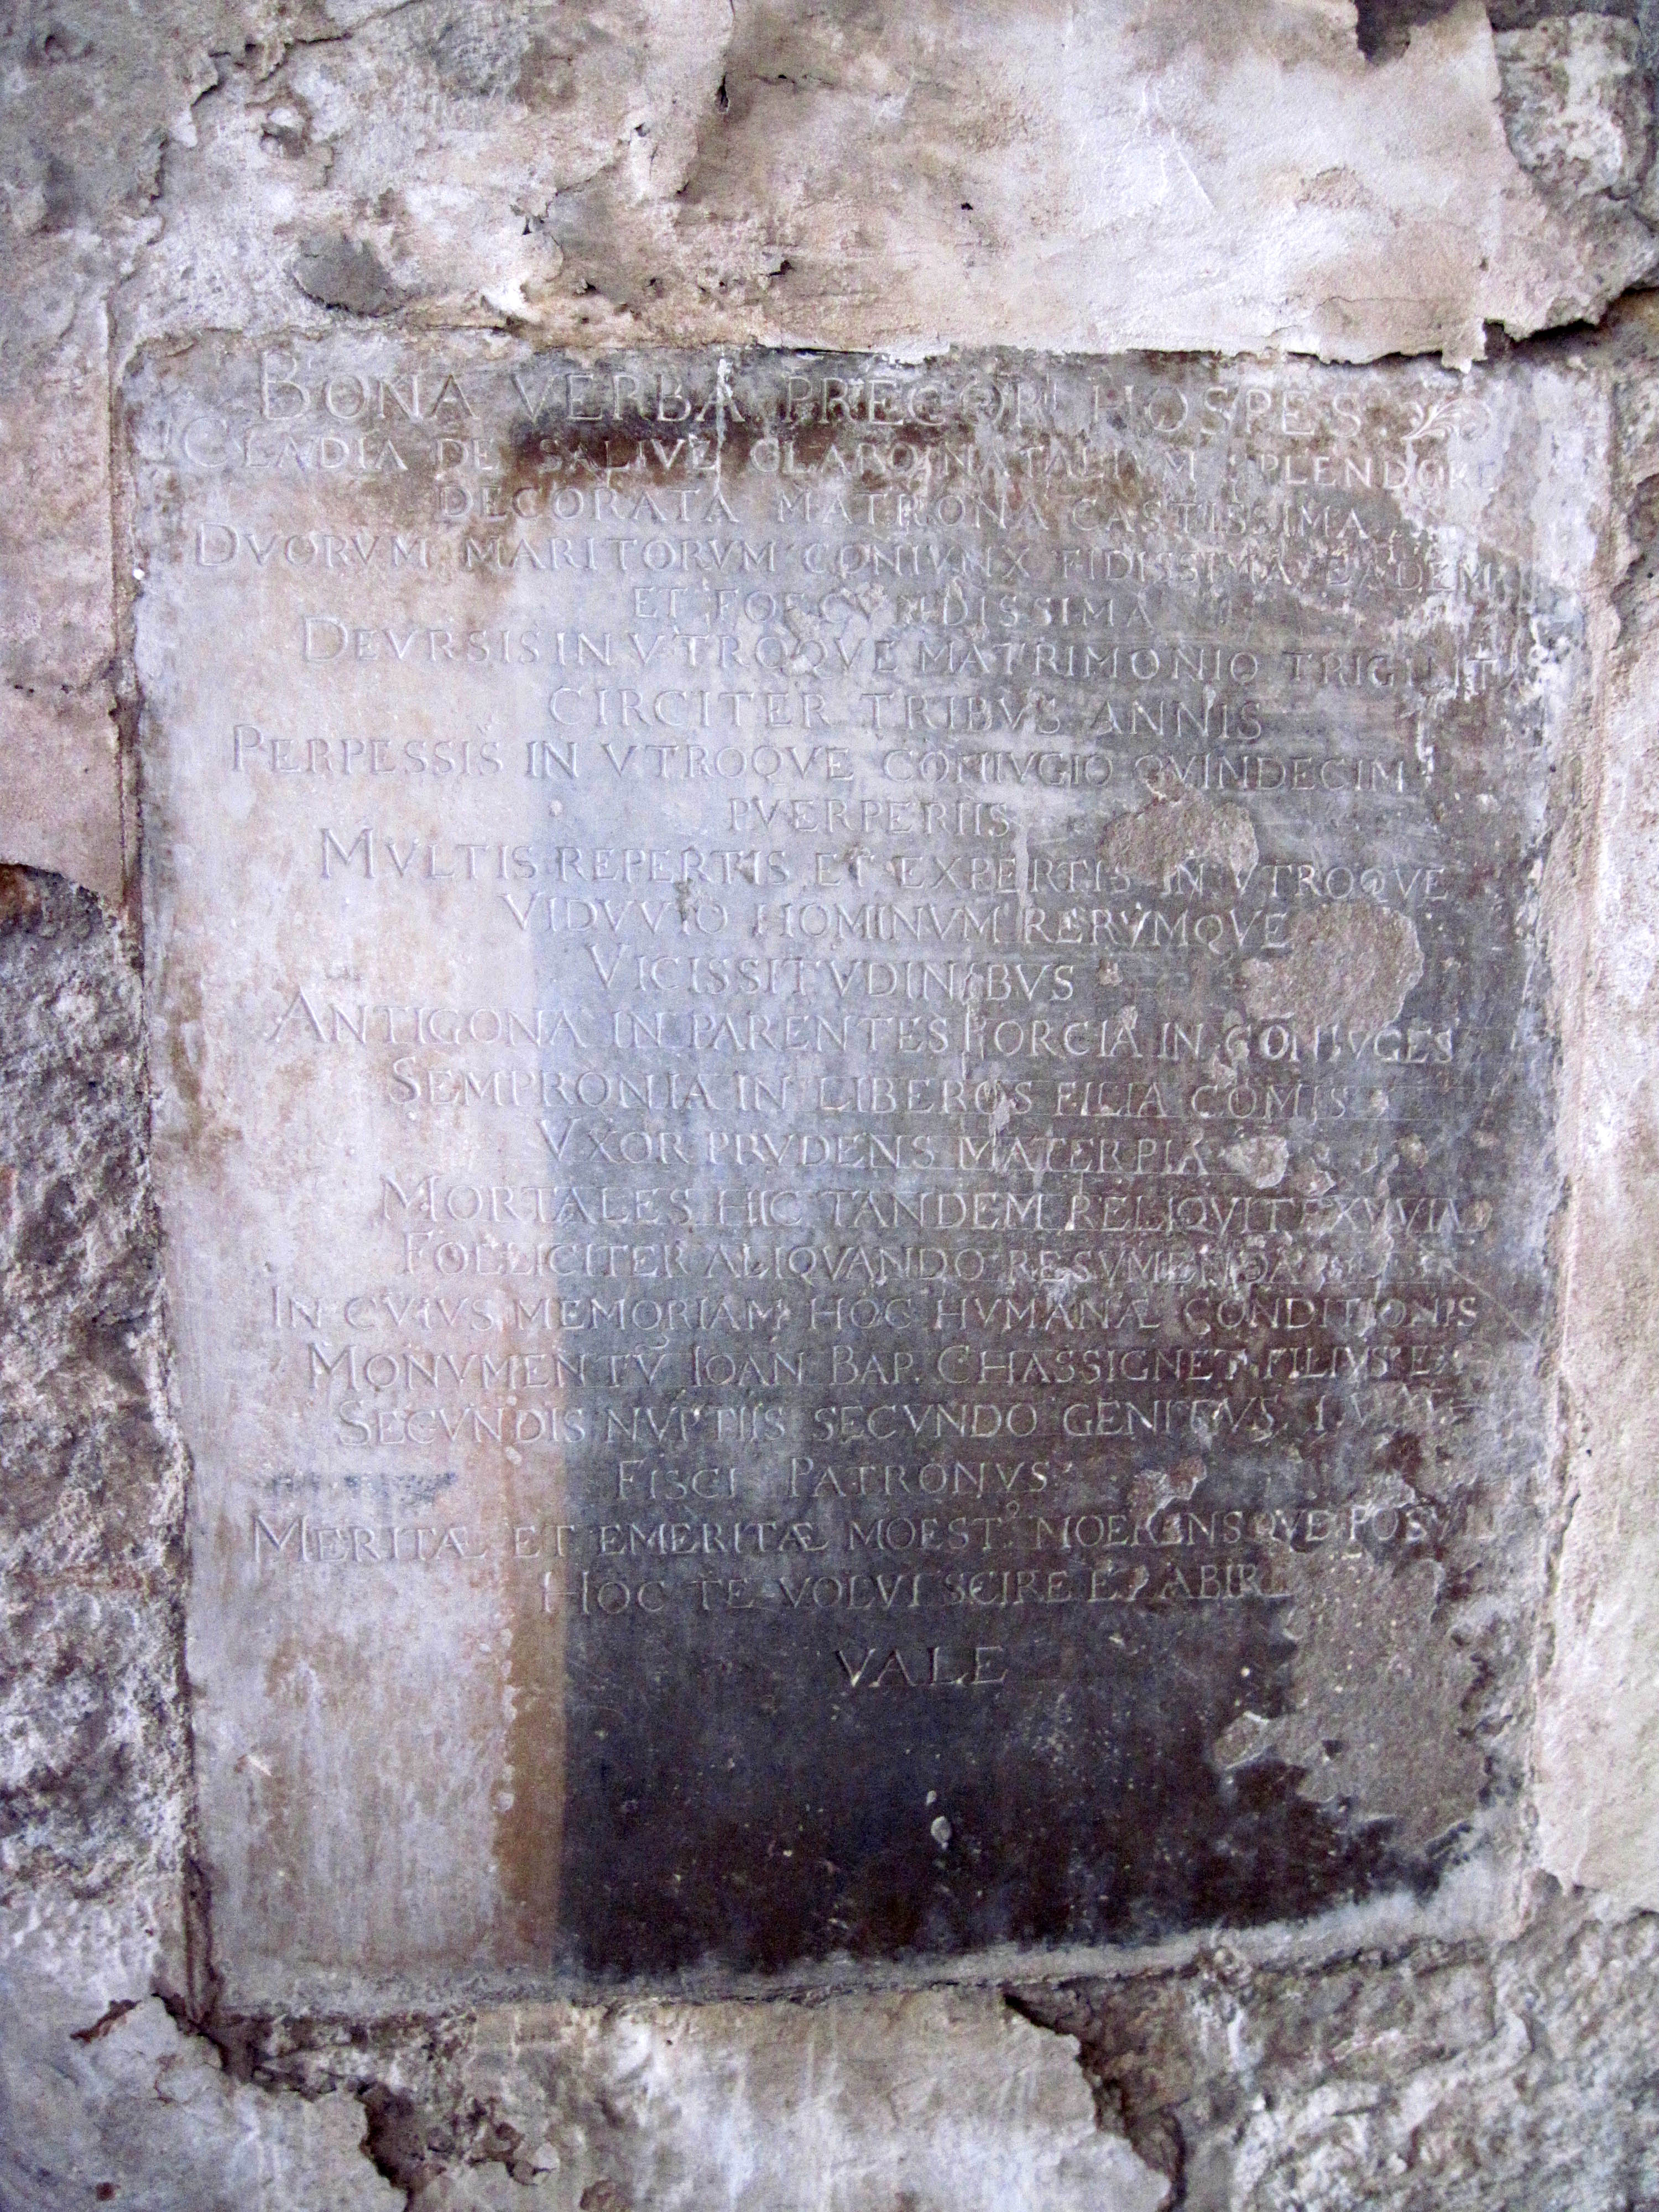 BONA VERBA PRECOR HOSPES
CLADIA DE SALIVE CLARO NATALIVM SPLENDORE
DECORATA MATRONA CASTISSIMA
DVORVM MARITORVM CONIVNX FIDISSIMA EADEM
ET FOECVNDISSIMA
DEVRSIS IN VTROQVE MATRIMONIO
CIRCITER TRIBVS ANNIS
PERPESSIS IN VTROQVE CONIVGIO QVINDECIM
PVERPERIIS
MVLTIS REPERTIS ET EXPERTIS IN VTROQVE
VIDVVIO HOMINVM RERVMQVE
VICISSITVDINIBVS
ANTIGONA IN PARENTES PORCIA IN CONIVGES
SEMPRONIA IN LIBEROS FILIA COMIS
VXOR PRVDENS MATER PIA
MORTALES HIC TANDEM RELIQVIT EXVVIAS
FOELICITER ALIQVANDO RESVMENDAS
IN CVIVS MEMORIAM HOC HVMANÆ CONDITIONIS
MONVMENTṼ IOAN BAP. CHASSIGNET FILIVS EX
SECVNDIS NVPTIIS SECVNDO GENITVS
FISCI PATRONVS
MERITÆ ET EMERITÆ MOEST. MOERENSQVE POSVIT
HOC TE VOLVI SCIRE ET ABIRE
VALE